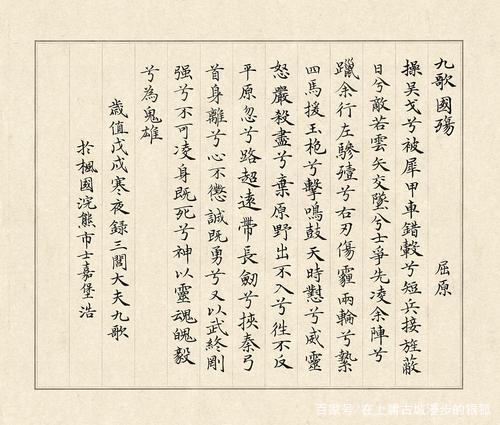 九歌國殤 屈原
操吳戈兮被犀甲車錯轂兮短兵接旌蔽
日兮敵若雲矢交墜兮士爭先凌余陣兮
躐余行左驂殪兮右刃傷霾兩輪兮縶
四馬援玉枹兮擊鳴鼓天時懟兮威靈
怒嚴殺盡兮棄原野出不入兮往不反
平原忽兮路超遠帶長劍兮挾秦弓
首身離兮心不懲誠既勇兮又以武終剛
强兮不可凌身既死兮神以靈魂魄毅
兮為鬼雄
歲值戊戌寒夜録三閭大夫九歌
於楓國浣熊市士嘉堡浩
百家号/在上庸古城漫步的银狐